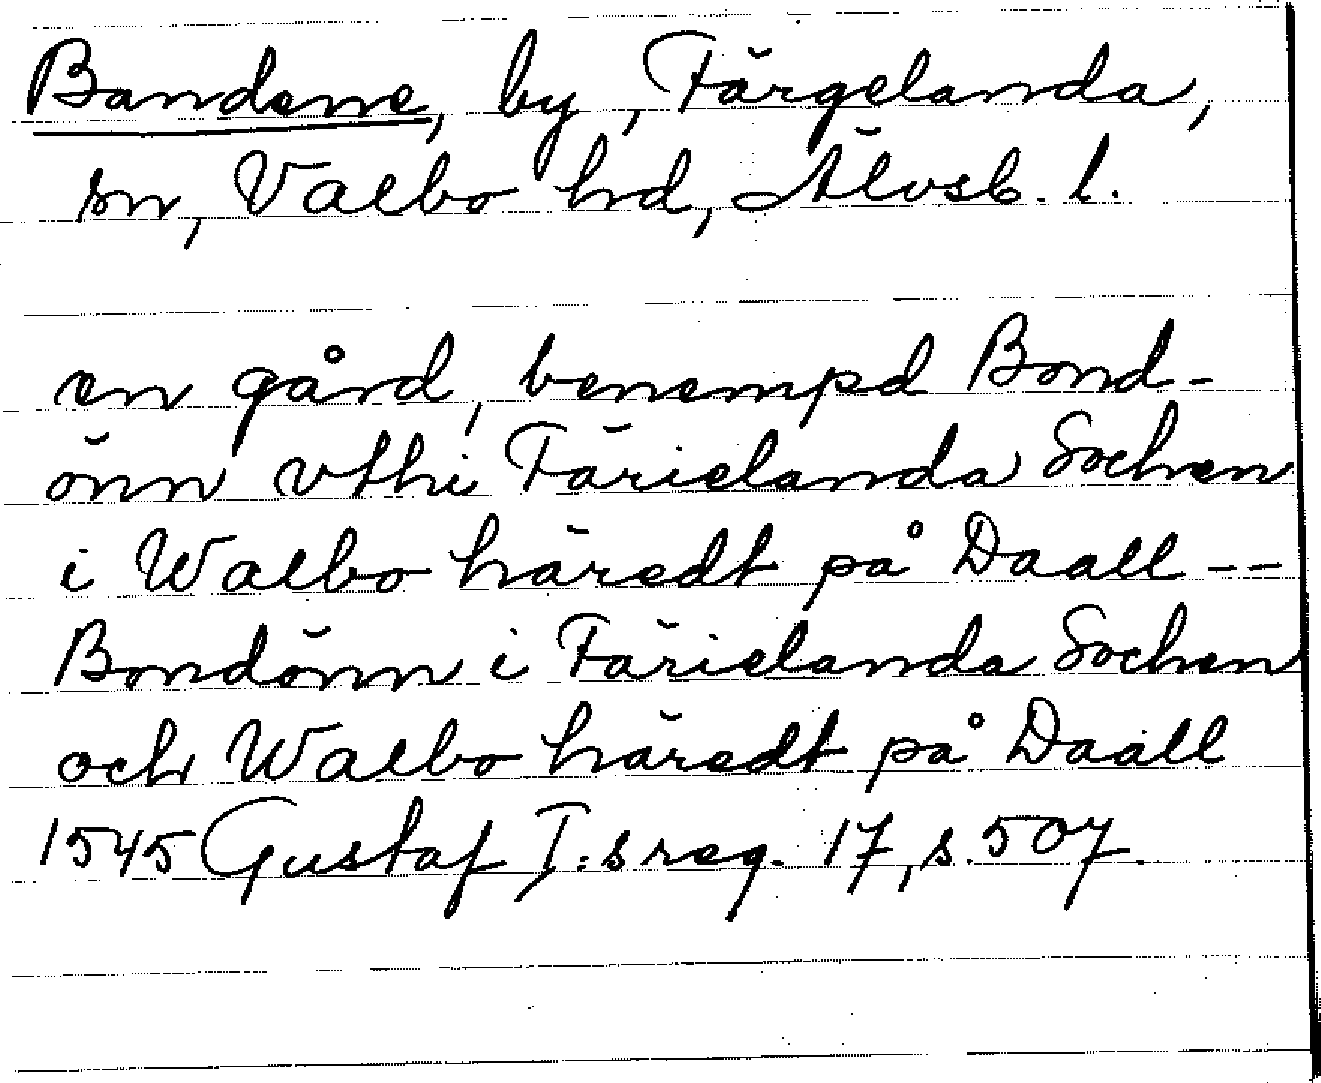 Bandene, by, Färgelanda,
sn, Valbo hd, Älvsb. l.
en gård, benempd Bond-
önn vthi Färielanda Sochen
i Walbo häredt på Daall --
Bondönn i Färielanda Sochen
och Walbo häredt på Daall
1545 Gustaf I:s reg. 17, s. 507.